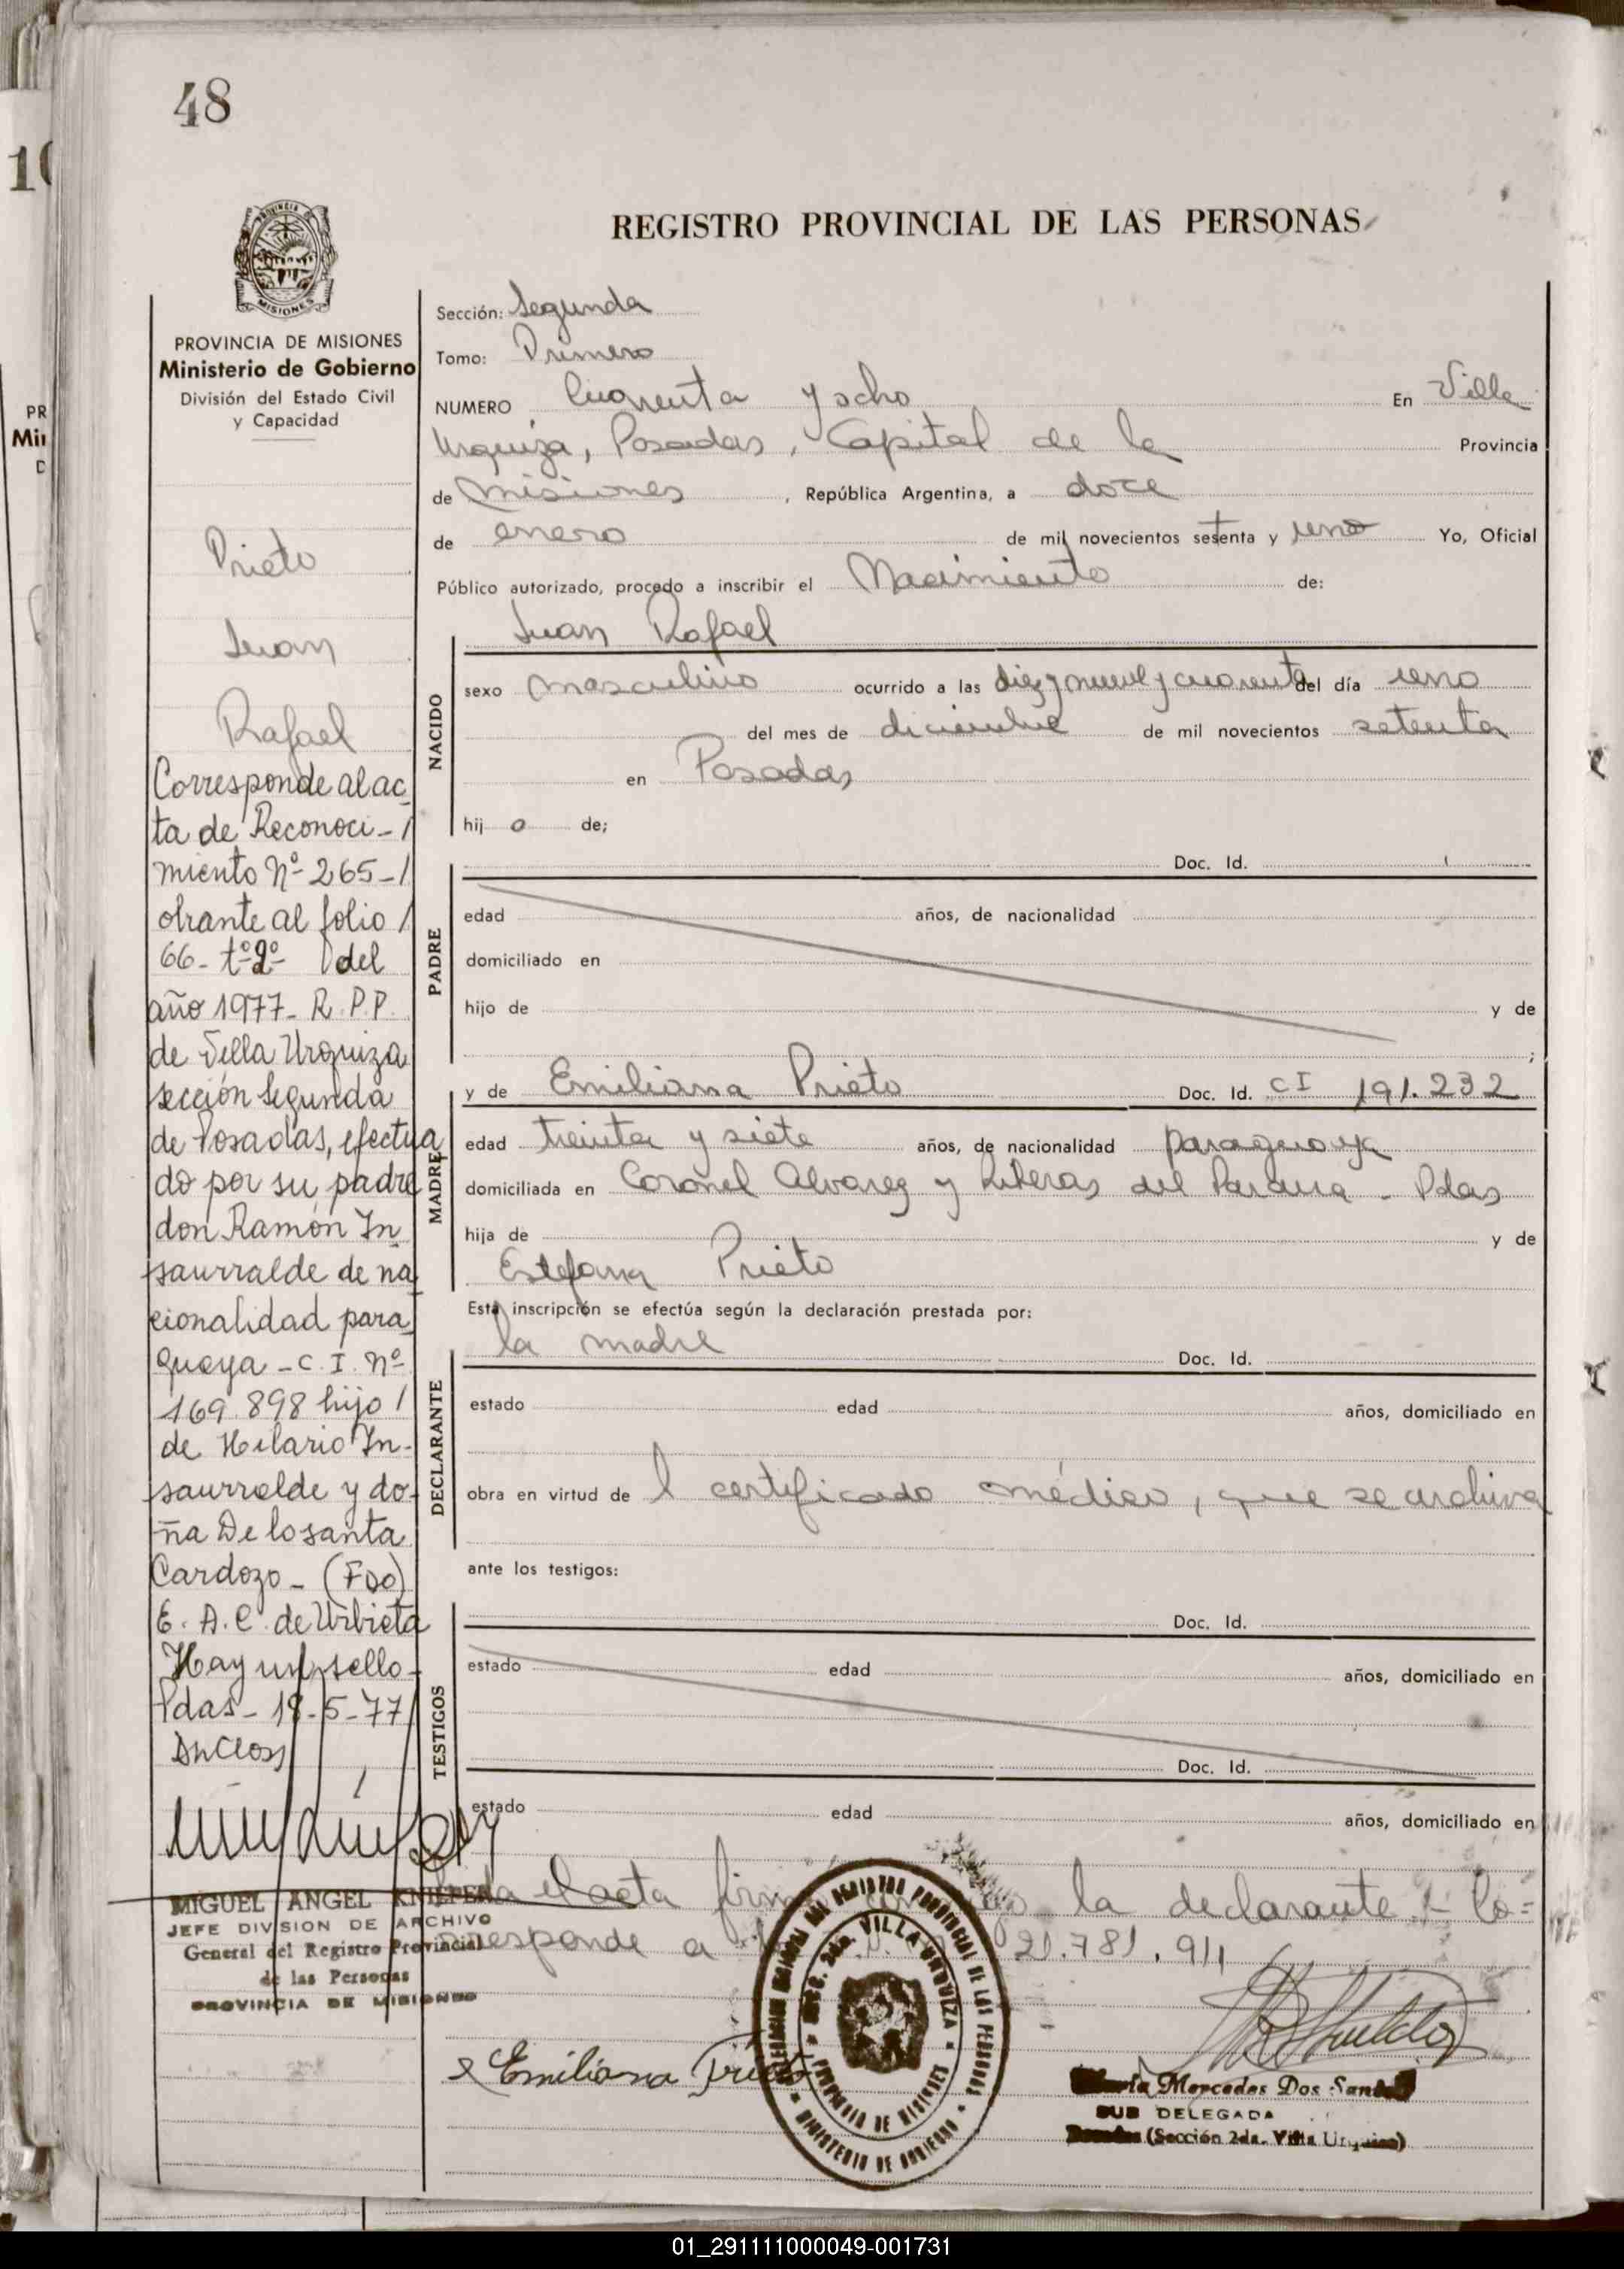 48
10
REGISTRO PROVINCIAL DE LAS PERSONAS
MISIONES
PROVINCIA DE MISIONES
Ministerio de Gobierno
División del Estado Civil
y Capacidad
Prieto
Juan
Rafael
Corresponde al ac
ta de Reconoci-/
miento Nº 265-/
obrante al folio /
66- tº 2º del
año 1977- R.P.P.
de Villa Urquiza
sección Segunda
de Posadas, efectua
do por su padre
don Ramón In
saurralde de na
cionalidad para
guaya - C.I. Nº
169.898 hijo /
de Hilario In-
saurralde y do-
ña De losanta
Cardozo - (Fdo)
E. A. C. de Urbieta
Hay un sello-
Pdas- 18-5-77/
MIGUEL ANGEL
JEFE DIVISION DE ARCHIVO
General del Registro Provincial
de las Personas
PROVINCIA DE MISIONES
Sección: Segunda
Tomo: Primero
NUMERO Cuarenta y ocho En Villa
Urquiza, Posadas, Capital de la Provincia
de misiones, República Argentina, a doce
de enero de mil novecientos setenta y uno Yo, Oficial
Público autorizado, procedo a inscribir el Nacimiento de:
Juan Rafael
NACIDO
sexo masculino ocurrido a las diez y nueve y cuarenta del día uno
del mes de diciembre de mil novecientos setenta
en Posadas
hij o de;
Doc. Id.
PADRE
edad años, de nacionalidad
domiciliado en
hijo de y de
;
MADRE
y de Emiliana Prieto Doc. Id. CI 191.232
edad treinta y siete años, de nacionalidad paraguaya
domiciliada en Coronel Alvarez y Riberas del Parana - Pdas
hija de y de
Estefana Prieto
Esta inscripción se efectúa según la declaración prestada por:
la madre Doc. Id.
DECLARANTE
estado edad años, domiciliado en
obra en virtud de l certificado médico, que se archiva
ante los testigos:
Doc. Id.
TESTIGOS
estado edad años, domiciliado en
Doc. Id.
estado edad años, domiciliado en
el acta la declarante.- Co=
rresponde a 21.781.911
Emiliana Prieto
VILLA URQUIZA
PROVINCIA DE MISIONES
MINISTERIO DE GOBIERNO
María Mercedes Dos Santos
SUB DELEGADA
Posadas (Sección 2da. Villa Urquiza)
01_291111000049-001731